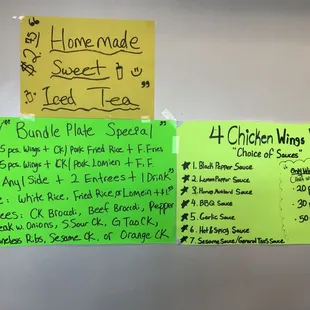 Homemade
Sweet
Iced Tea
Bundle Plate Special
5 pcs. Wings + CK/Pork Fried Rice + F. Fries
5 pcs. Wings + CK/Pork Lomein + F.F.
Any 1 Side + 2 Entrees + 1 Drink
: White Rice, Fried Rice or Lomein + $1
ees: CK Brocoli, Beef Brocoli, Pepper
eak w. Onions, S. Sour CK, G. Tao CK,
neless Ribs, Sesame CK. or Orange CK
4 Chicken Wings
"Choice of Sauces"
1. Black Pepper Sauce
2. Lemon Pepper Sauce
3. Honey Mustard Sauce
4. BBQ Sauce
5. Garlic Sauce
6. Hot & Spicy Sauce
7. Sesame Sauce/General Tao's Sauce
Only Wings
20 p
30
50